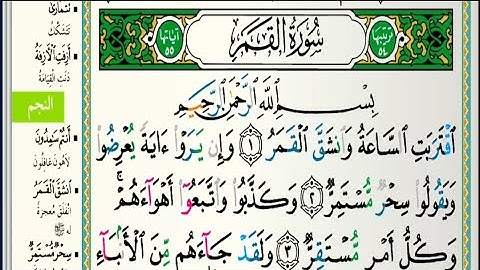 ترتيبها ٥٤
سُورَةُ القَمَرِ
آياتها ٥٥
بِسْمِ اللَّهِ الرَّحْمَٰنِ الرَّحِيمِ
ٱقْتَرَبَتِ ٱلسَّاعَةُ وَٱنشَقَّ ٱلْقَمَرُ ١ وَإِن يَرَوْا۟ ءَايَةً يُعْرِضُوا۟
وَيَقُولُوا۟ سِحْرٌ مُّسْتَمِرٌّ ٢ وَكَذَّبُوا۟ وَٱتَّبَعُوٓا۟ أَهْوَآءَهُمْ ۚ
وَكُلُّ أَمْرٍ مُّسْتَقِرٌّ ٣ وَلَقَدْ جَآءَهُم مِّنَ ٱلْأَنۢبَآءِ
تَتَمَارَىٰ
تتشكّك
أَزِفَتِ ٱلْأَزِفَةُ
دنت القيامة
النجم
أَنتُمْ سَٰمِدُونَ
لاهون غافلون
ٱنشَقَّ ٱلْقَمَرُ
انفلق معجزة
له ﷺ
سِحْرٌ مُّسْتَمِرٌّ